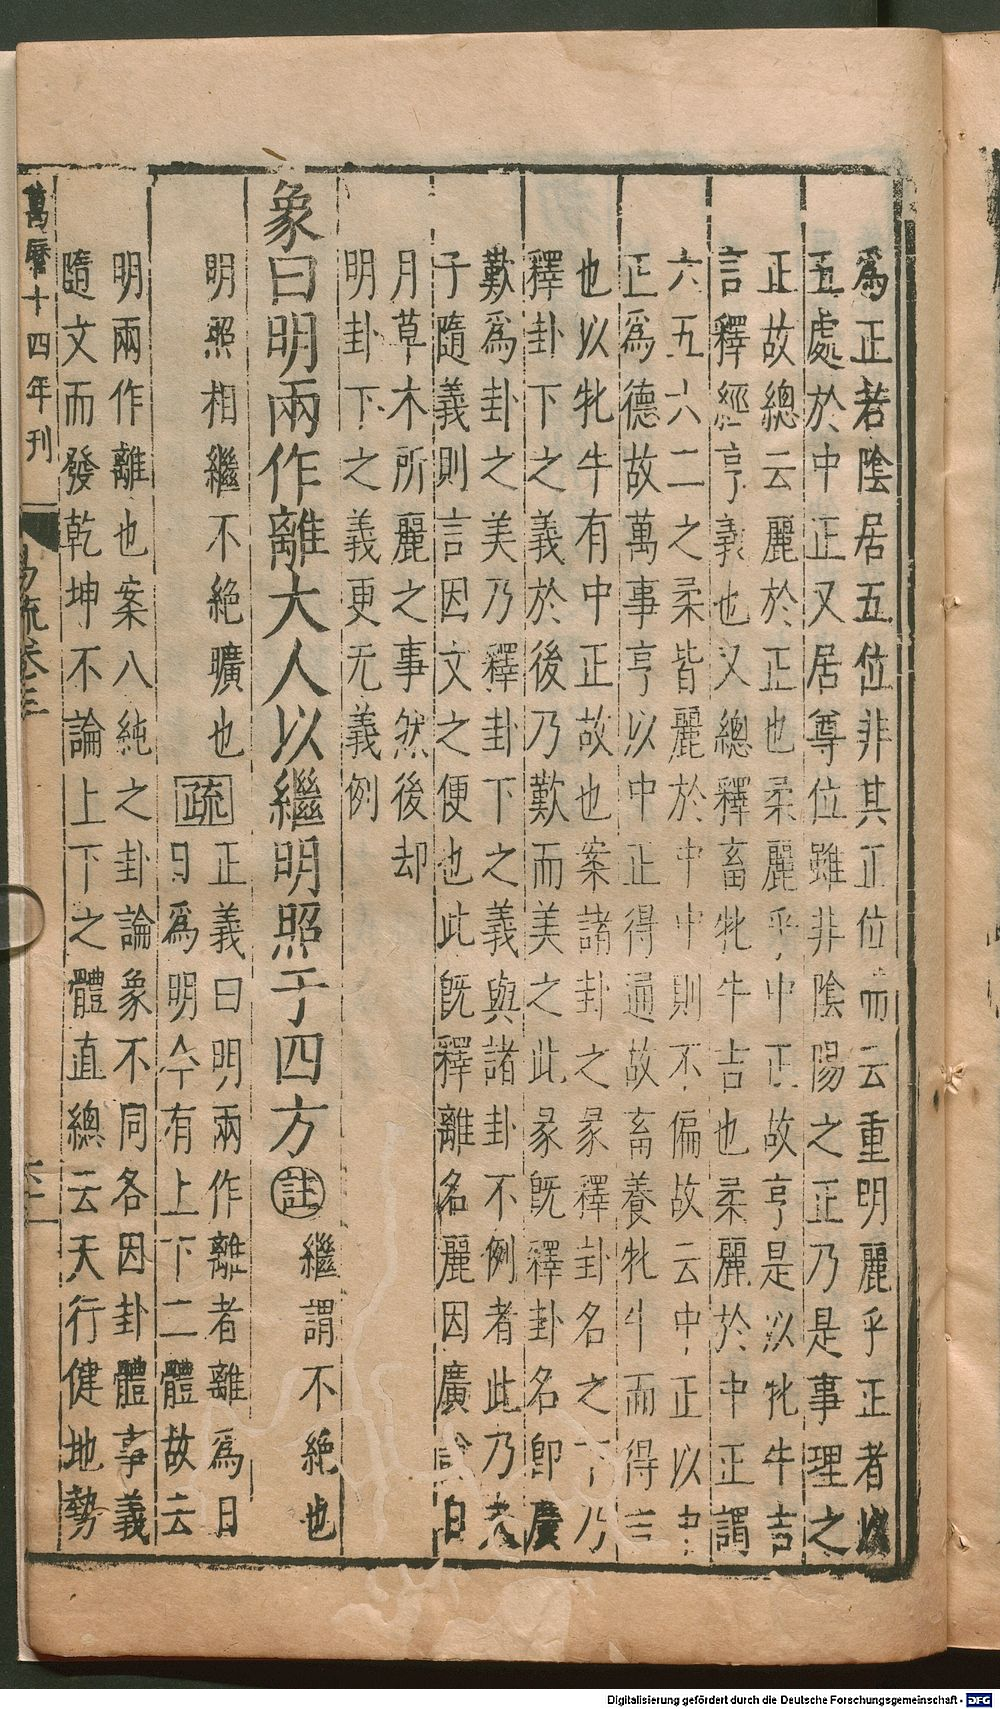 爲正若陰居五位非其正位而云重明麗乎正者以
五處於中正又居尊位雖非陰陽之正乃是事理之
正故總云麗於正也柔麗乎中正故亨是以牝牛吉
言釋經亨義也又總釋畜牝牛吉也柔麗於中正謂
六五六二之柔皆麗於中中則不偏故云中正以中
正爲德故萬事亨以中正得通故畜養牝牛而得吉
也以牝牛有中正故也案諸卦之彖釋卦名之下乃
釋卦下之義於後乃歎而美之此彖旣釋卦名卽廣
歎爲卦之美乃釋卦下之義與諸卦不例者此乃夫
子隨義則言因文之便也此旣釋離名麗因廣說日
月草木所麗之事然後却
明卦下之義更无義例
象曰明兩作離大人以繼明照于四方註繼謂不絶也
明照相繼不絶曠也疏正義曰明兩作離者離爲日
日爲明今有上下二體故云
明兩作離也案八純之卦論象不同各因卦體事義
隨文而發乾坤不論上下之體直總云天行健地勢
萬曆十四年刊
易疏卷三
Digitalisierung gefördert durch die Deutsche Forschungsgemeinschaft - DFG